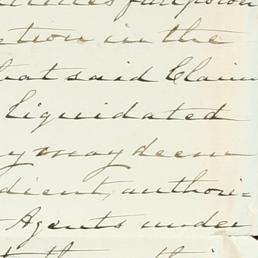 tion in the
that said Claim
liquidated
y may deem
dient, authori
Agents under